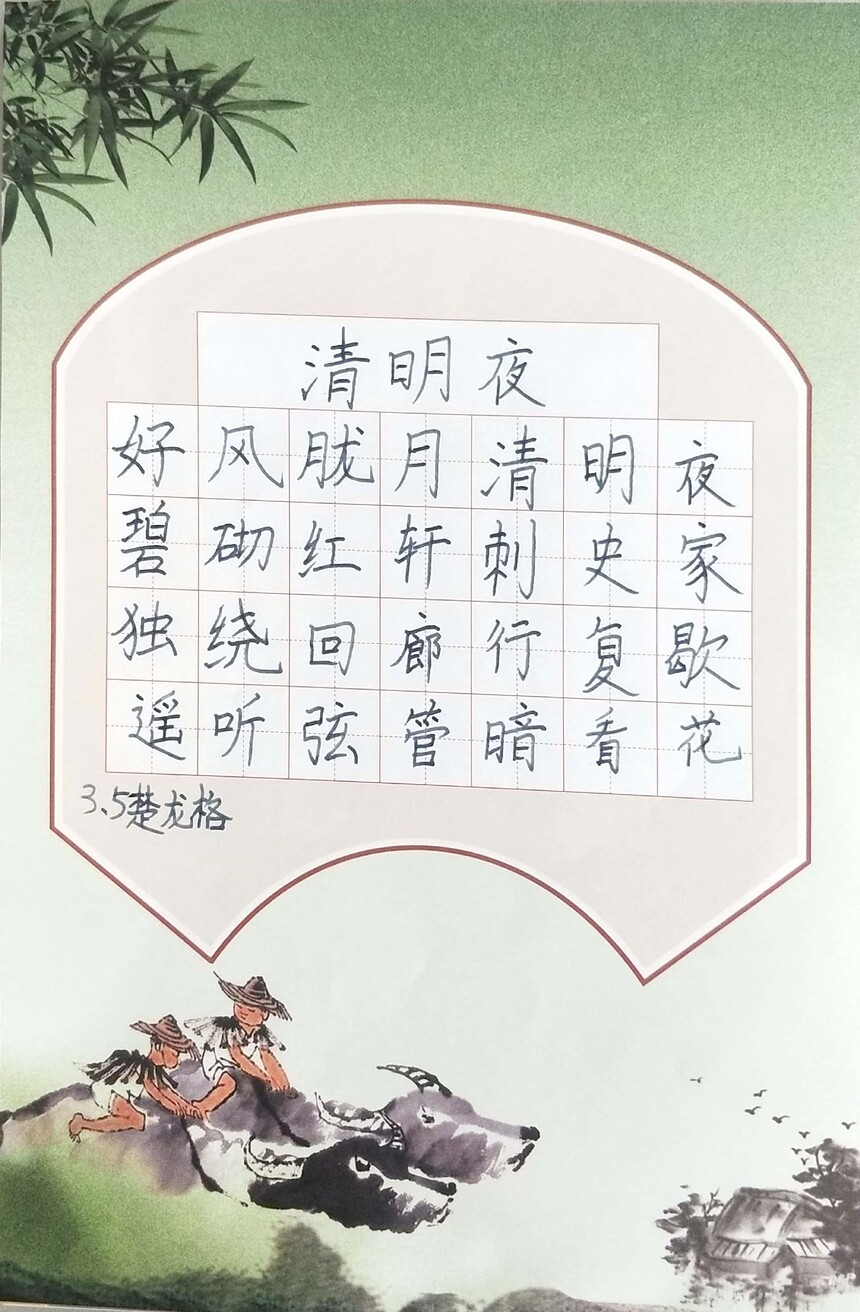 清明夜
好风胧月清明夜
碧砌红轩刺史家
独绕回廊行复歇
遥听弦管暗看花
3.5楚龙格